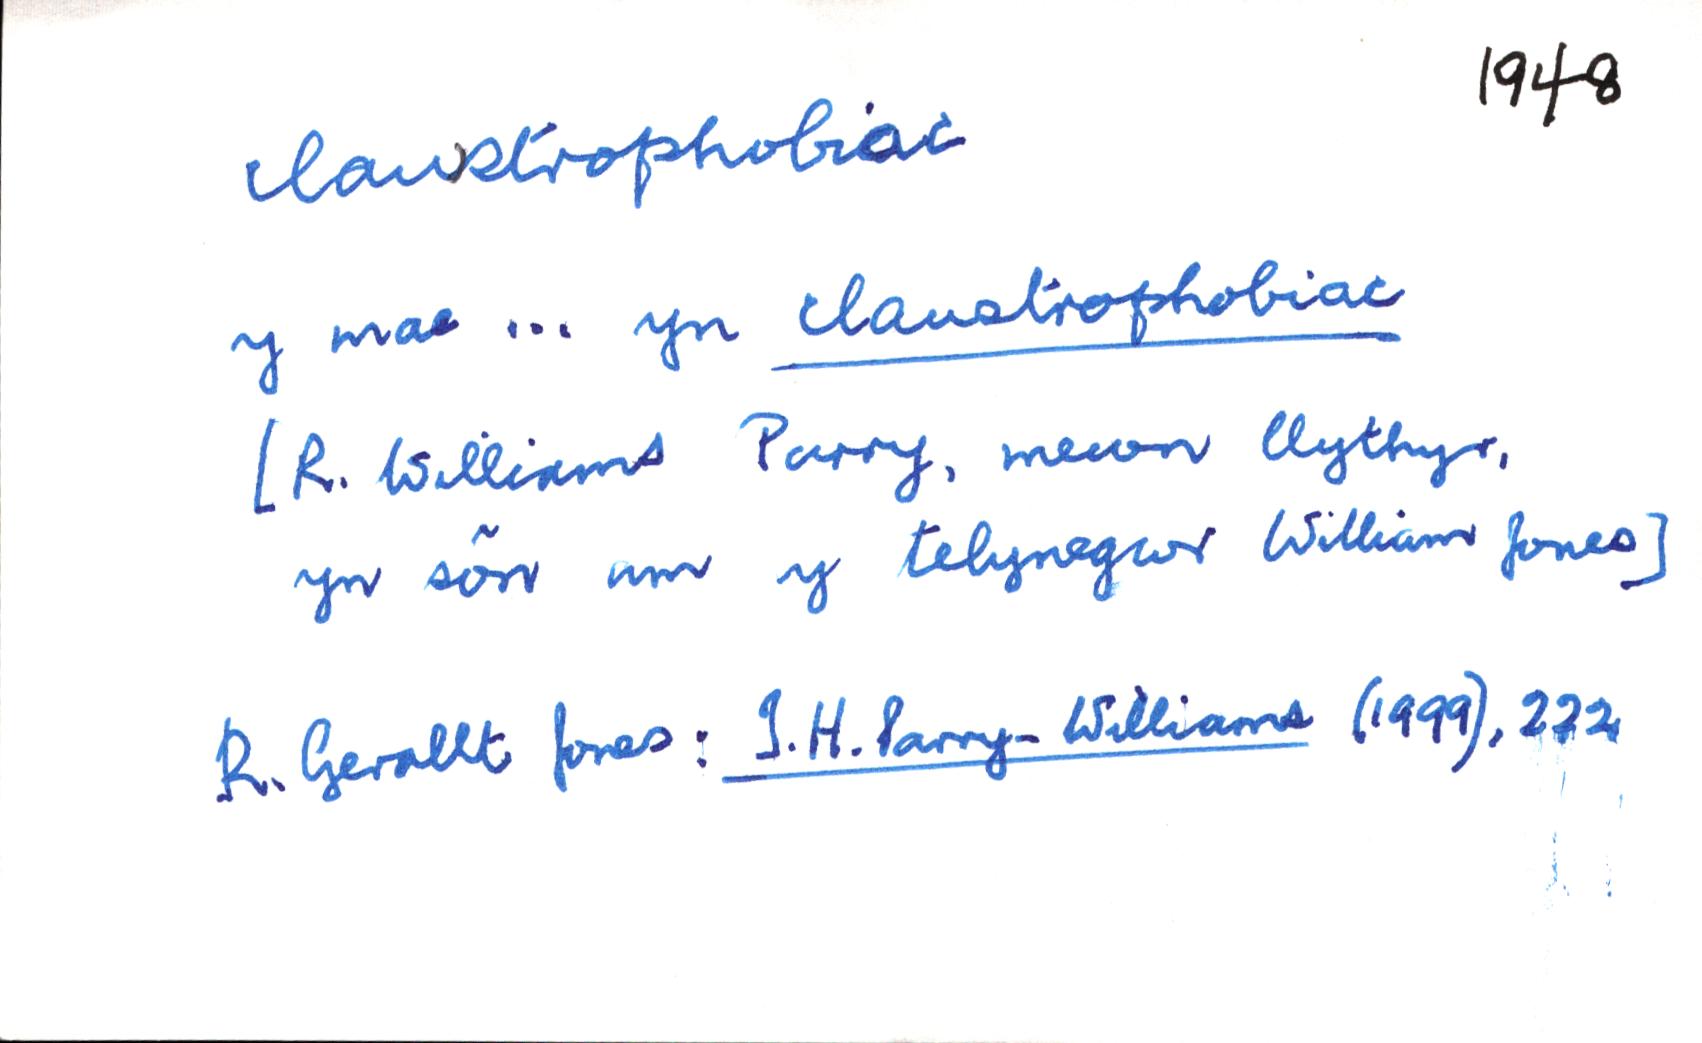 1948
claustrophobiac
y mae ... yn claustrophobiac
[R. Williams Parry, mewn llythyr,
yn sôn am y telynegwr William Jones]
R. Gerallt Jones: T.H. Parry-Williams (1999), 222